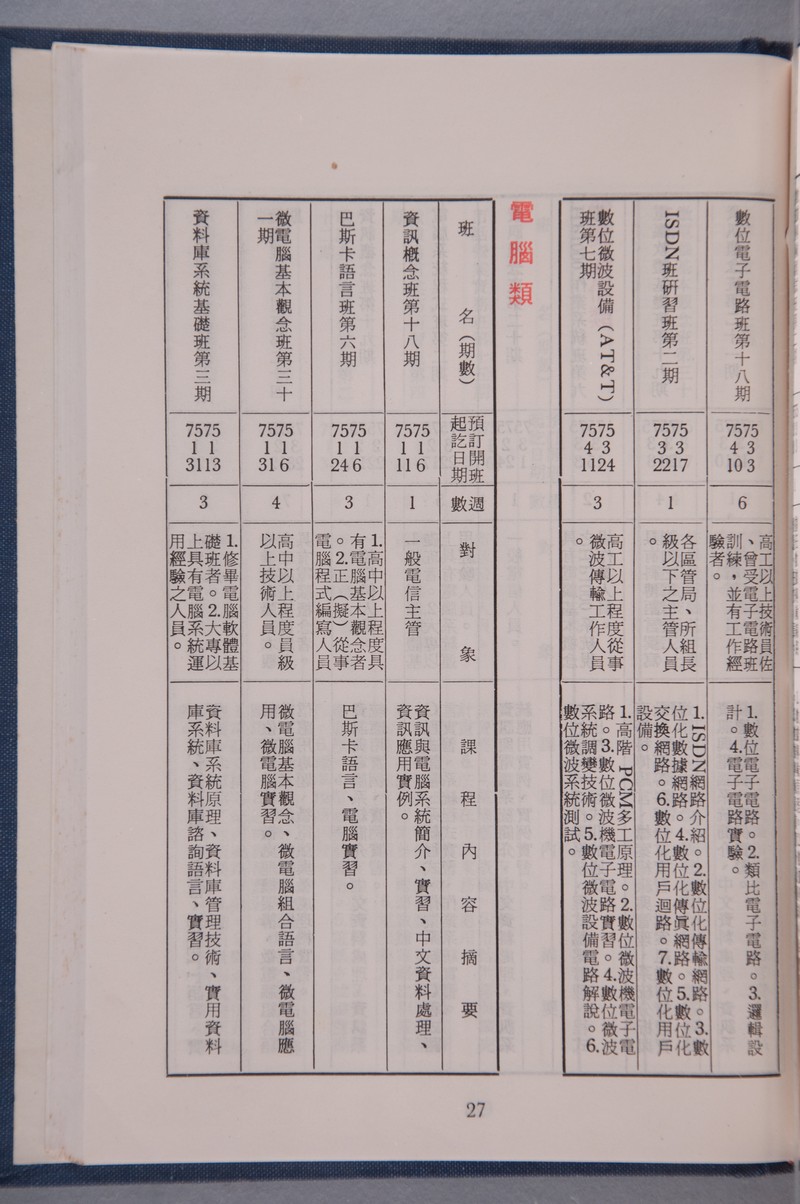 數位電子電路班第十八期
75 3 3
75 4 10
6
高工以上技術員佐
、曾受電子電路班
訓練，並有工作經
驗者。
1.數位電子電路。2.類比電子電路。3.邏輯設
計。4.電子電路實驗。
ISDN班研習班第二期
75 3 17
75 3 22
1
各區管局、所組長
級以下之主管人員
。
1.ISDN網路介紹。2.數位化傳輸網路。3.數
位化數據網路。4.數位化傳眞網路。5.數位化
交換網路。6.數位化用戶迴路。7.數位化用戶
設備。
數位微波設備（AT&T）
班第七期
75 3 24
75 4 11
3
高工以上程度從事
微波傳輸工作人員
。
1.高階 PCM多工原理。2.數位微波機電子電
路。3.數位微波機電子電路實習。4.數位微波
系統調變技術。5.數位微波設備電路解說。6.
數位微波系統測試。
電腦類
班名（期數）
預訂開班
起訖日期
週數
對象
課程內容摘要
資訊概念班第十八期
75 1 6
75 1 11
1
一般電信主管
資訊與電腦系統簡介、實習、中文資料處理、
資訊應用實例。
巴斯卡語言班第六期
75 1 6
75 1 24
3
1.高中以上程度具
有電腦基本觀念者
。2.正（擬）從事
電腦程式編寫人員
巴斯卡語言、電腦實習。
微電腦基本觀念班第三十
一期
75 1 6
75 1 31
4
高中以上程度員級
以上技術人員。
微電腦基本觀念、微電腦組合語言、微電腦應
用、微電腦實習。
資料庫系統基礎班第三期
75 1 13
75 1 31
3
1.修畢電腦軟體基
礎班者。2.大專以
上具有電腦系統運
用經驗之人員。
資料庫系統原理、資料庫管理技術、實用資料
庫系統、資料庫諮詢語言、實習。
27